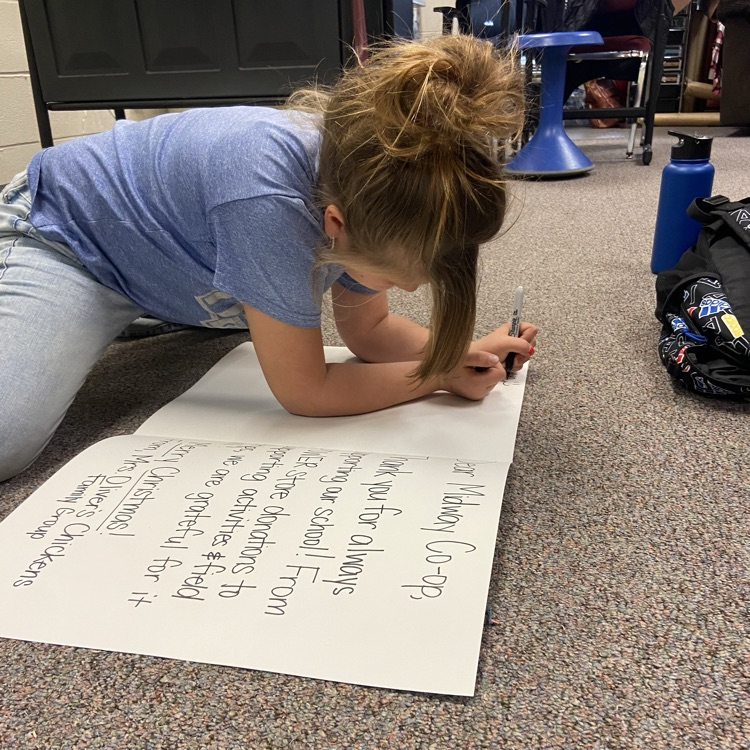 Dear Midway Co-op,
Thank you for always
supporting our school! From
donations to
supporting activities & field
we are grateful for it
Merry Christmas!
Mrs. Oliver's Chickens
Family Group